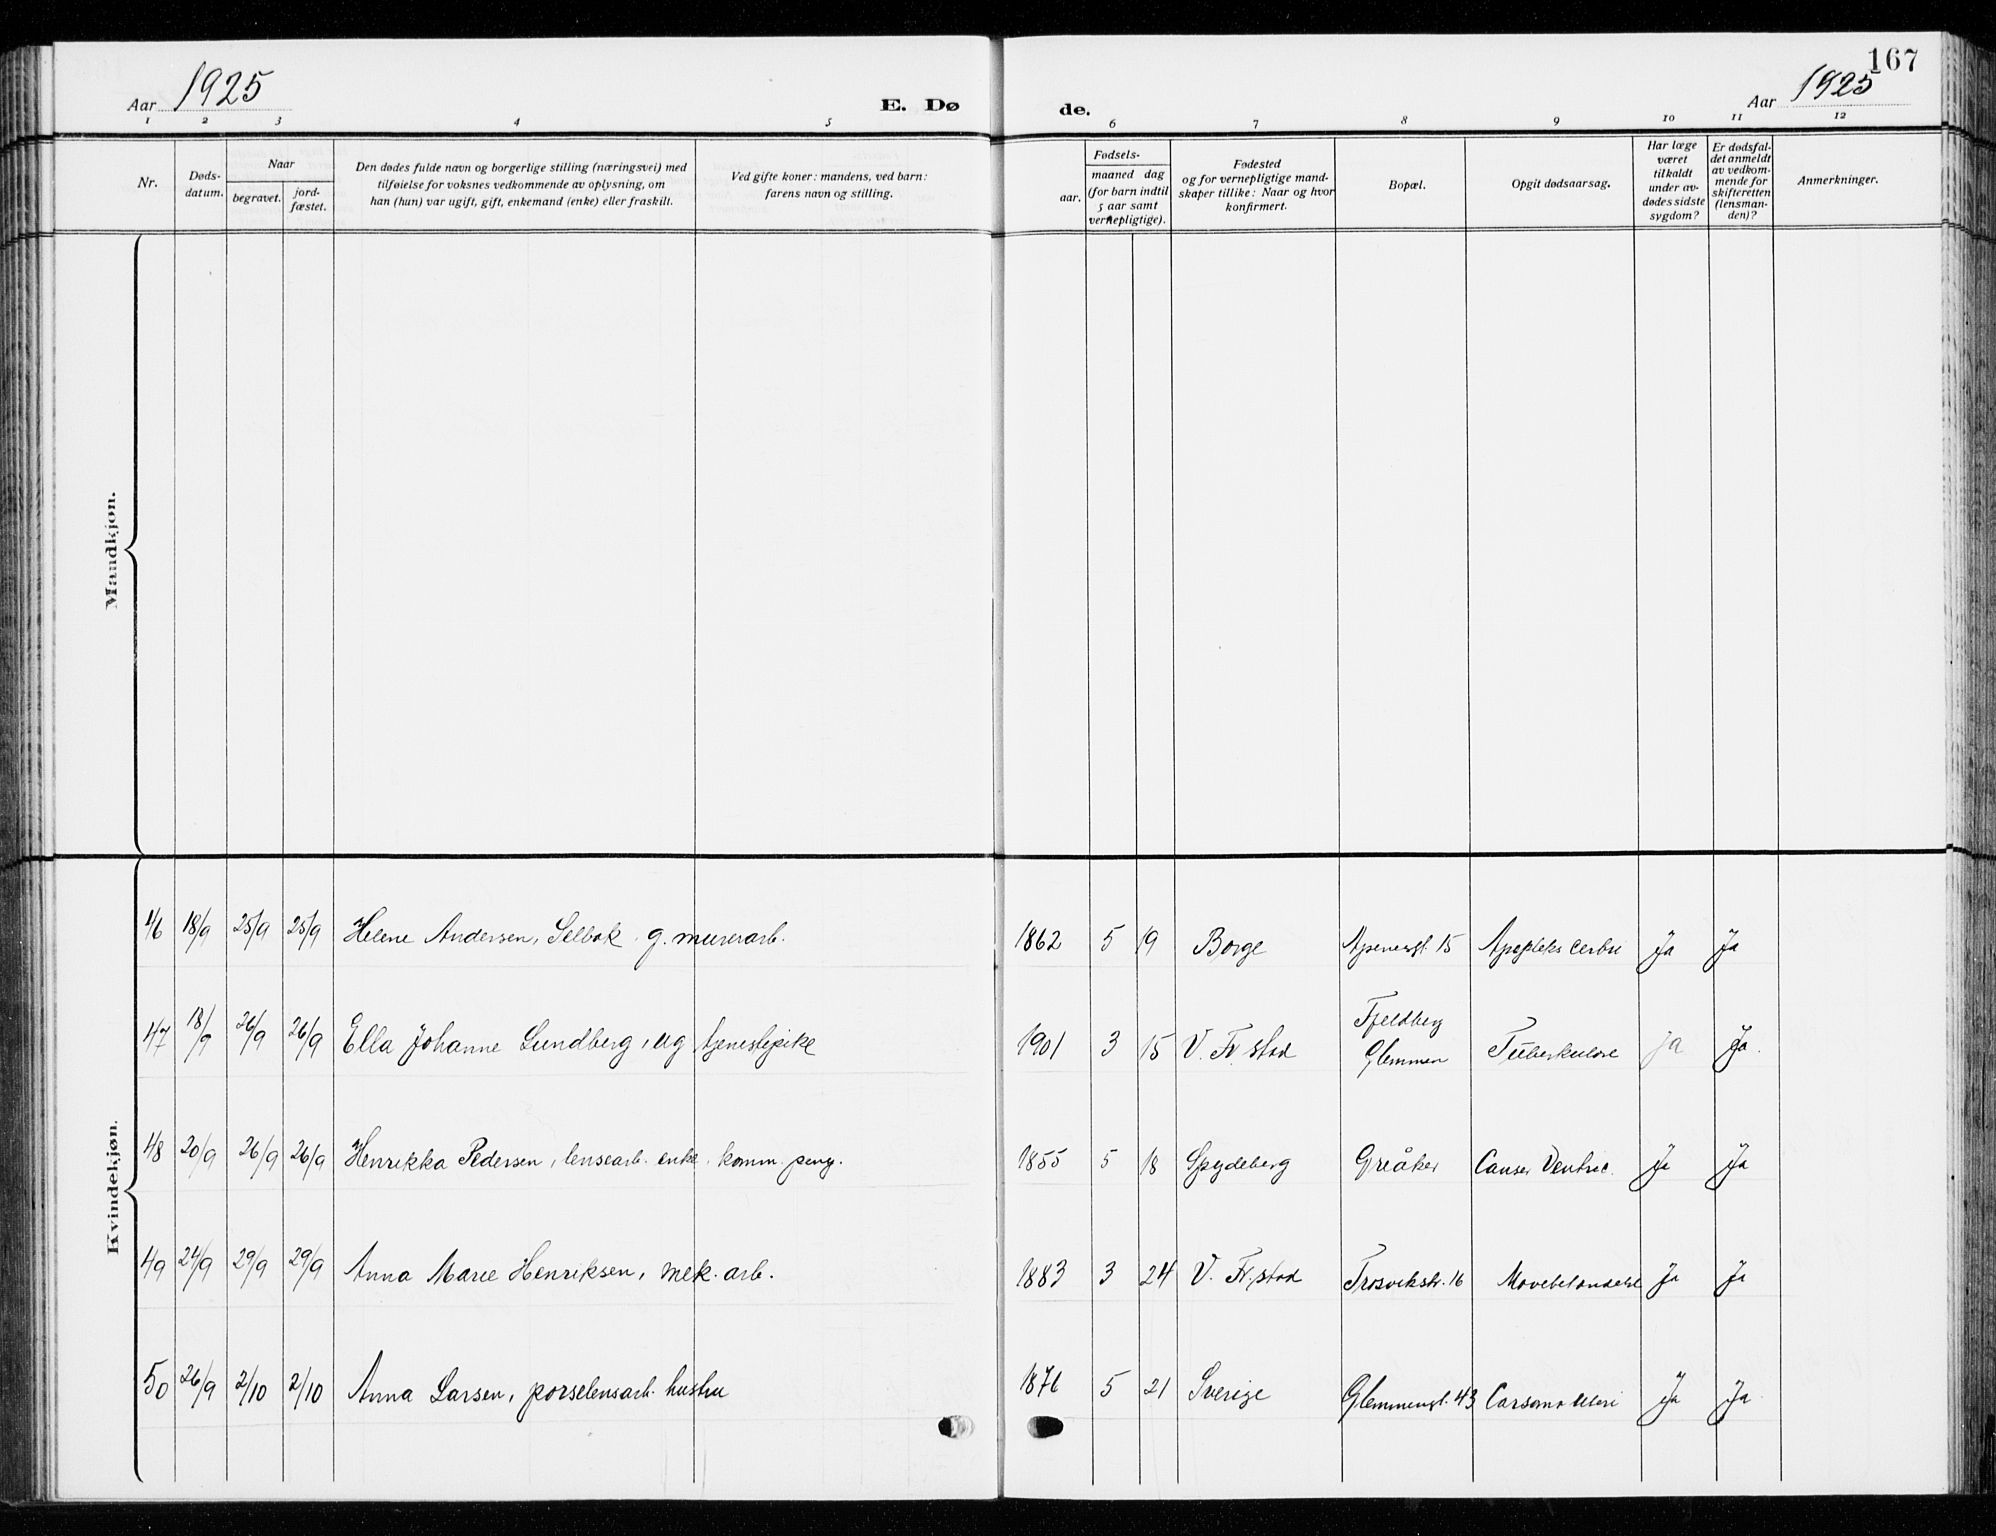 167
Aar 1925
E. Dø
de.
Aar 1925
1 2 3 4 5 6 7 8 9 10 11 12
Nr.
Døds-
datum.
Naar
begravet.
jord-
fæstet.
Den dødes fulde navn og borgerlige stilling (næringsvei) med
tilføielse for voksnes vedkommende av oplysning, om
han (hun) var ugift, gift, enkemand (enke) eller fraskilt.
Ved gifte koner: mandens, ved barn:
farens navn og stilling.
aar.
Fødsels-
maaned dag
(for barn indtil
5 aar samt
vernepligtige).
Fødested
og for vernepligtige mand-
skaper tillike: Naar og hvor
konfirmert.
Bopæl.
Opgit dødsaarsag.
Har læge
været
tilkaldt
under av-
dødes sidste
sygdom?
Er dødsfal-
det anmeldt
av vedkom-
mende for
skifteretten
(lensman-
den)?
Anmerkninger.
Mandkjøn.
Kvindekjøn.
46 18/9 25/9 25/9 Helene Andersen, Selbak. g. murerarb. 1862 5 19 Borge 15 Ja Ja
47 18/9 26/9 26/9 Ella Johanne Lundberg, ug tjenestepike 1901 3 15 V. Fr.stad Fjeldberg
Glemmen Tuberkulose Ja Ja.
48 20/9 26/9 26/9 Henrikka Pedersen, lensearb. enke. komm. peng. 1855 5 18 Spydeberg Greåker Canser Ventric. Ja Ja
49 24/9 29/9 29/9 Anna Marie Henriksen, mek. arb. 1883 3 24 V. Fr.stad Trosvikstr. 16 Mavebetændelse Ja Ja
50 26/9 2/10 2/10 Anna Larsen, porselensarb. hustru 1876 5 21 Sverige Glemmengt. 43 Ja Ja